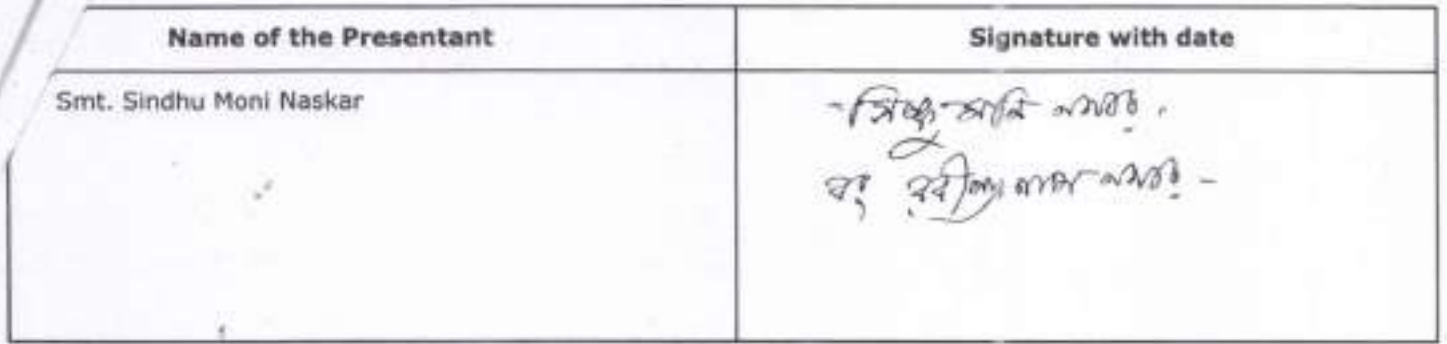 Name of the Presentant
Signature with date
Smt. Sindhu Moni Naskar
সিন্ধু মনি নস্কর
রবীন্দ্র নাথ নস্কর